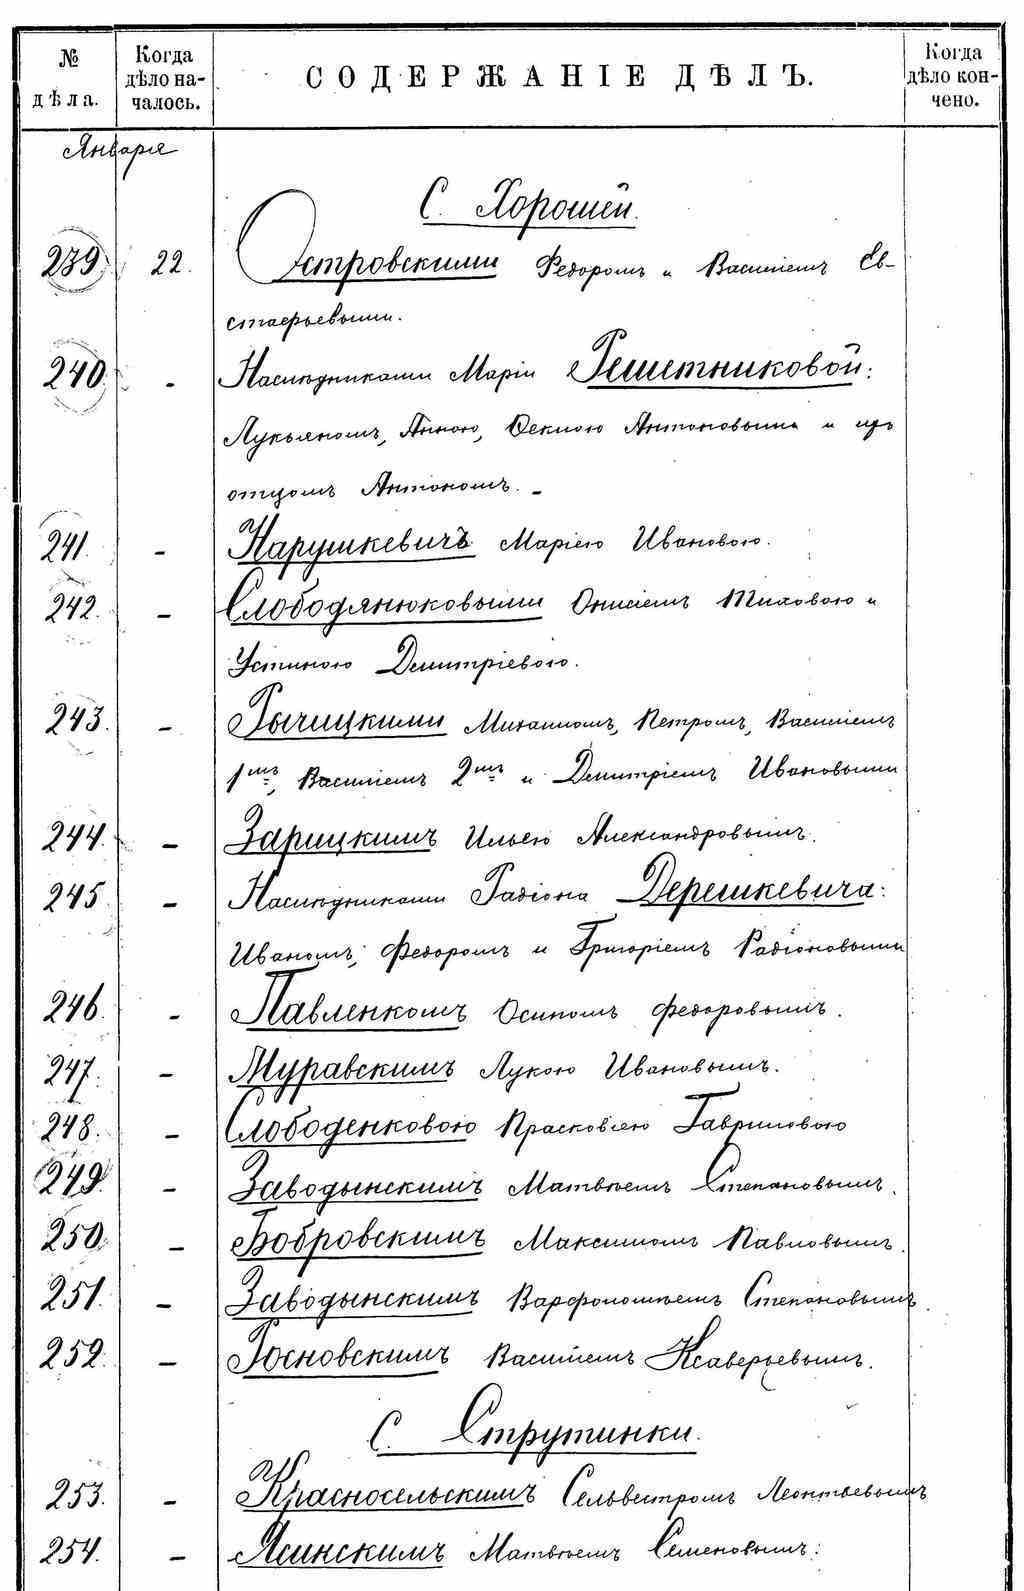 № дѣла. Когда дѣло на- чалось. СОДЕРЖАНІЕ ДѢЛЪ. Когда дѣло кон- чено.
Января
С. Хорошей.
239. 22. Островскими Федоромъ и Василіемъ Ев-
стафьевыми.
240. - Наслѣдниками Маріи Решетниковой:
Лукьяномъ, Анною, Феклою Антоновыми и ихъ
отцомъ Антономъ. -
241. - Нарушкевичъ Маріею Ивановою.
242. - Слободянюковыми Онисіемъ Тиховою и
Устиною Димитріевою.
243. - Рычицкими Михаиломъ, Петромъ, Василіемъ
1мъ, Василіемъ 2мъ и Димитріемъ Ивановыми
244. - Зарицкимъ Ильею Александровымъ.
245 - Наслѣдниками Радіона Дерешкевича:
Иваномъ, Федоромъ и Григоріемъ Радіоновыми
246. - Павленкомъ Осипомъ Федоровымъ.
247. - Муравскимъ Лукою Ивановымъ.
248. - Слободенковою Прасковіею Гавриловою
249. - Заводынскимъ Матвѣемъ Степановымъ.
250. - Бобровскимъ Максимомъ Павловымъ.
251. - Заводынскимъ Варфоломѣемъ Степановымъ.
252. - Росновскимъ Василіемъ Ксаверьевымъ.
С. Струтинки.
253. - Красносельскимъ Сельвестромъ Леонтьевымъ
254. - Ясинскимъ Матвѣемъ Семеновымъ: